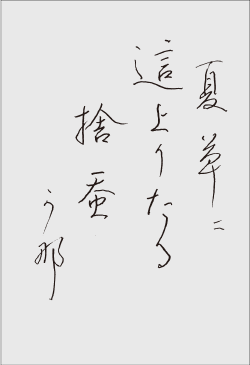 夏草に
這上りたる
捨蚕
か那